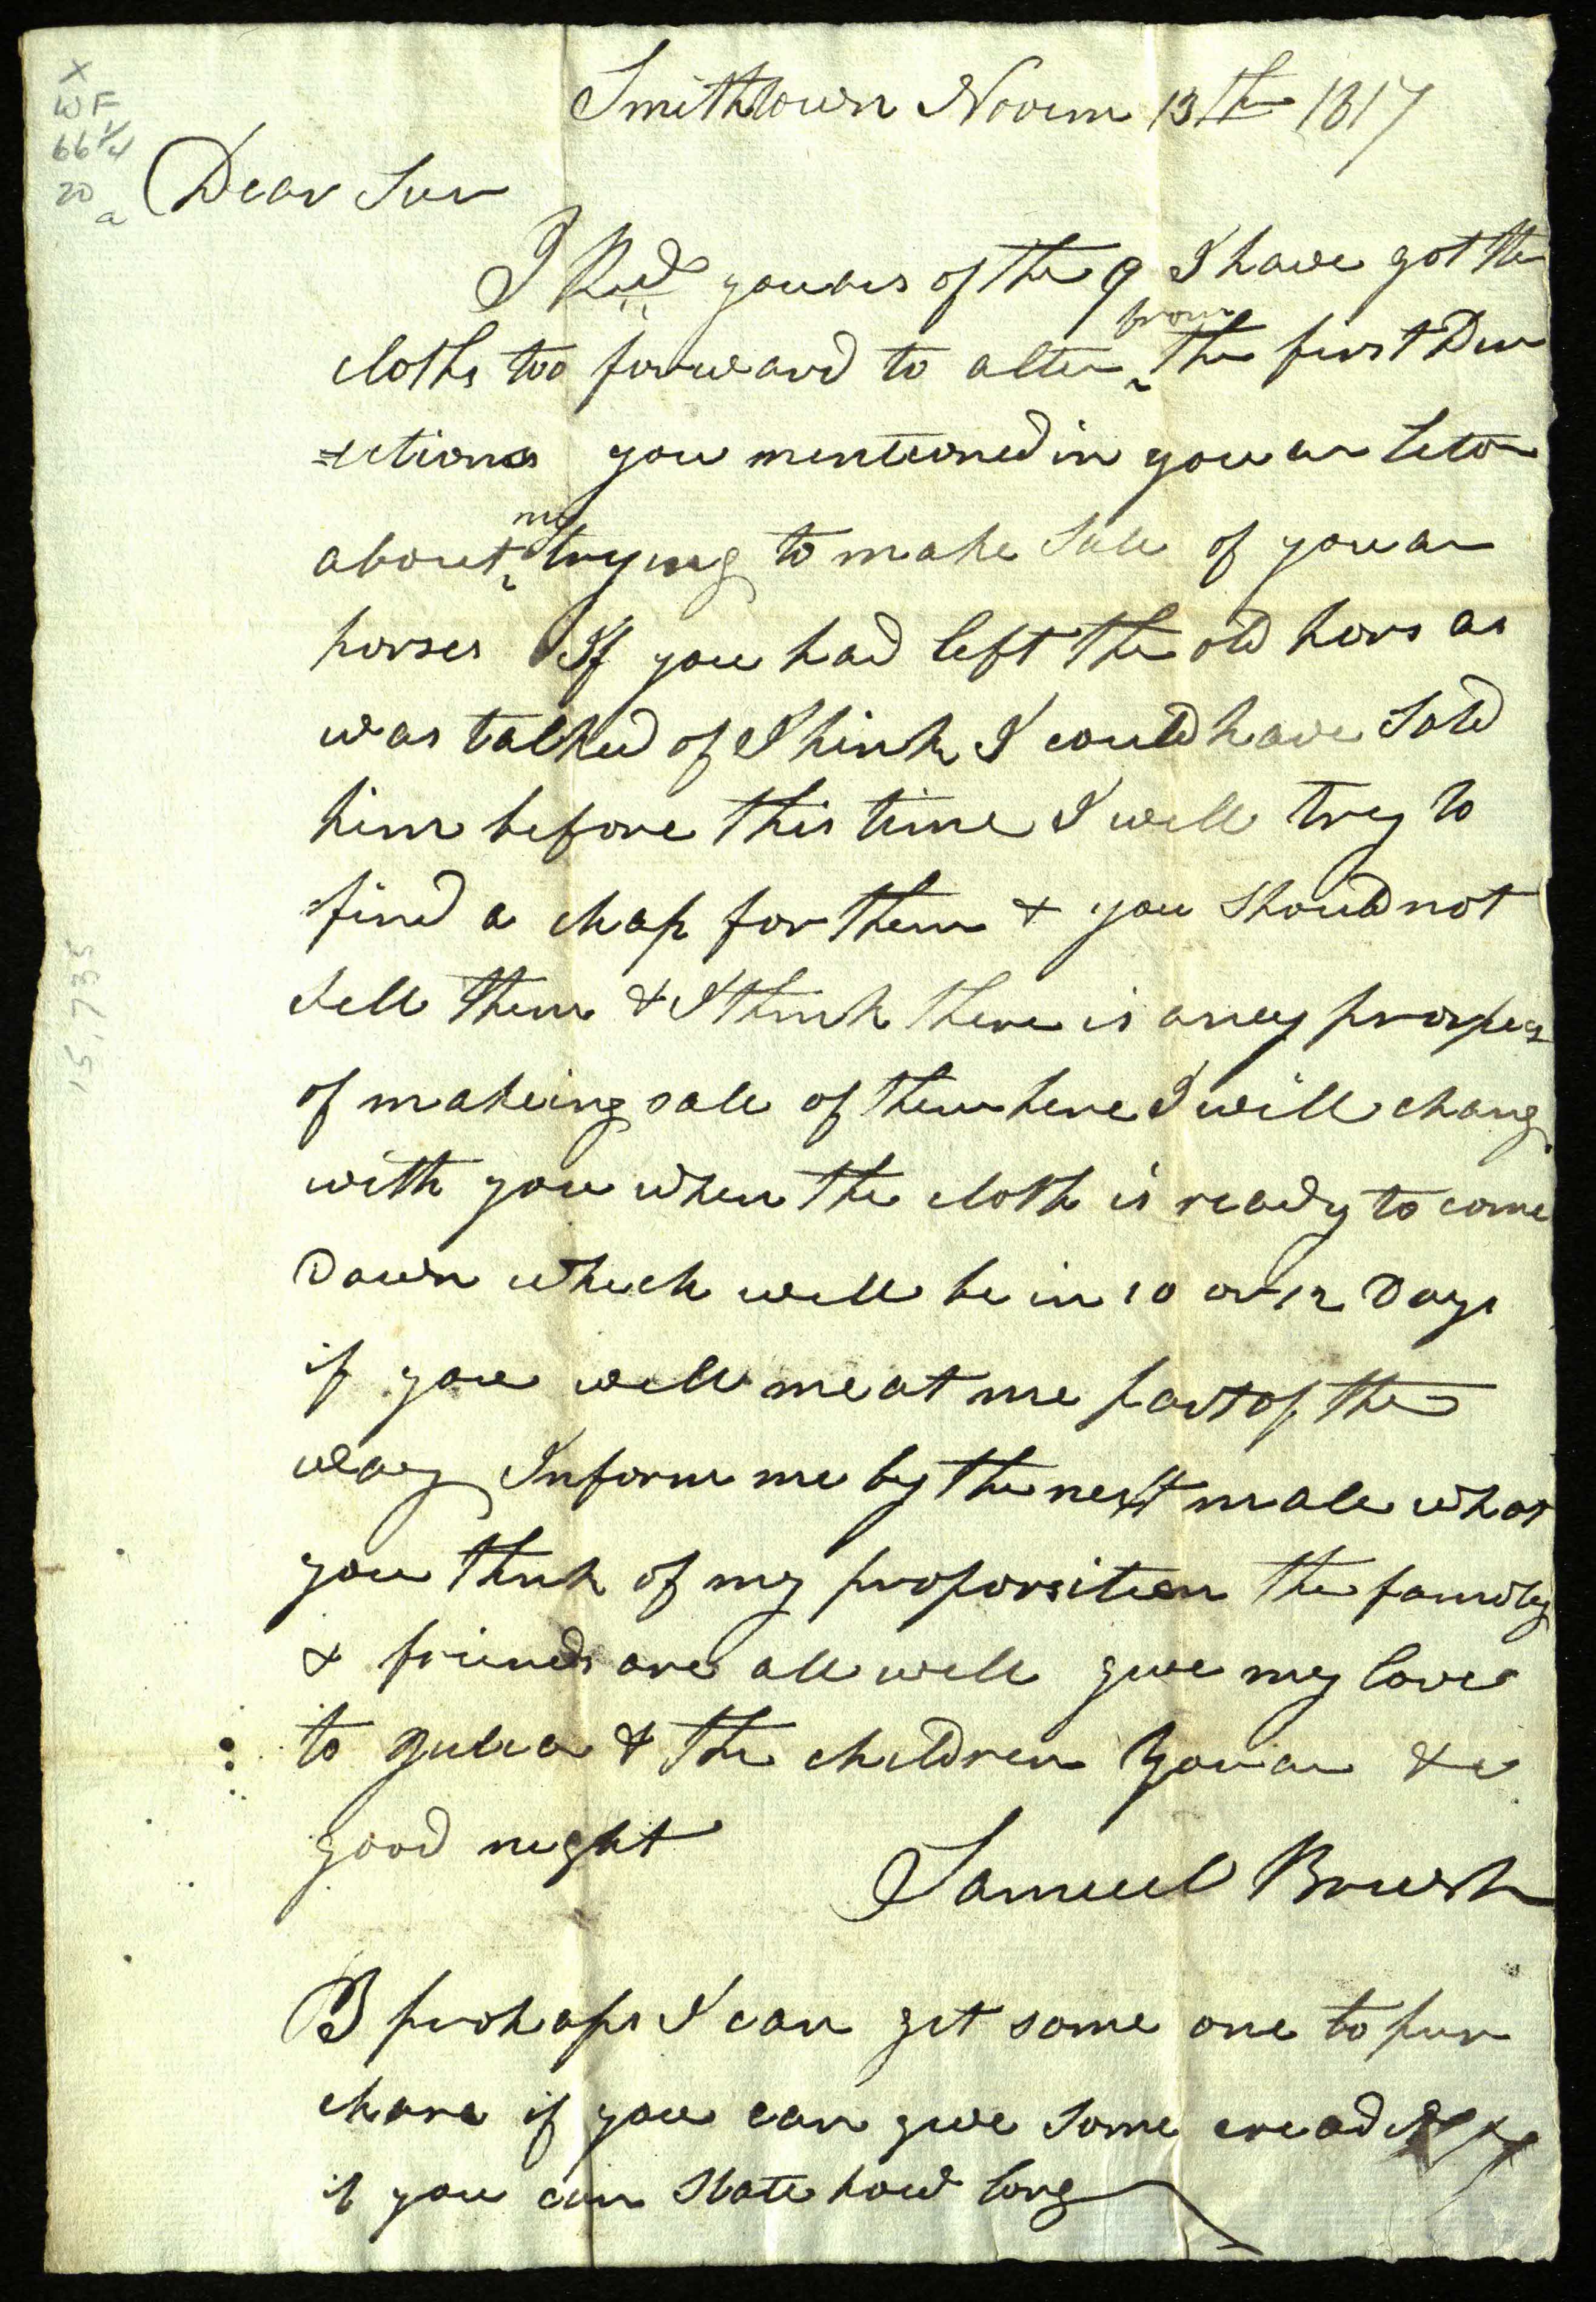 X
WF
66 1/4
20
a
Smithtown Novem 13th 1817
Dear Sur
I Recd youars of the 9 I have got the
cloths too forward to alter from the first Dir
=ections you mentioned in youar leter
about my trying to make Sale of youar
horses If you had left the old hors as
was talked of I hink I could have Sold
him before this time I will try to
find a chap for them & you should not
sell them & I think there is aney prospect
of makeing sale of them here I will chang
with you when the cloth is ready to come
Down which will be in 10 or 12 Days
if you will meat me part of the
way Inform me by the next male what
you think of my proporsition the famely
& friends are all well give my love
to Julia & the children youar &c
good night
Samuel Brush
perhaps I can get some one to pur
chase if you can give some creadit
if you can State how long
15,735